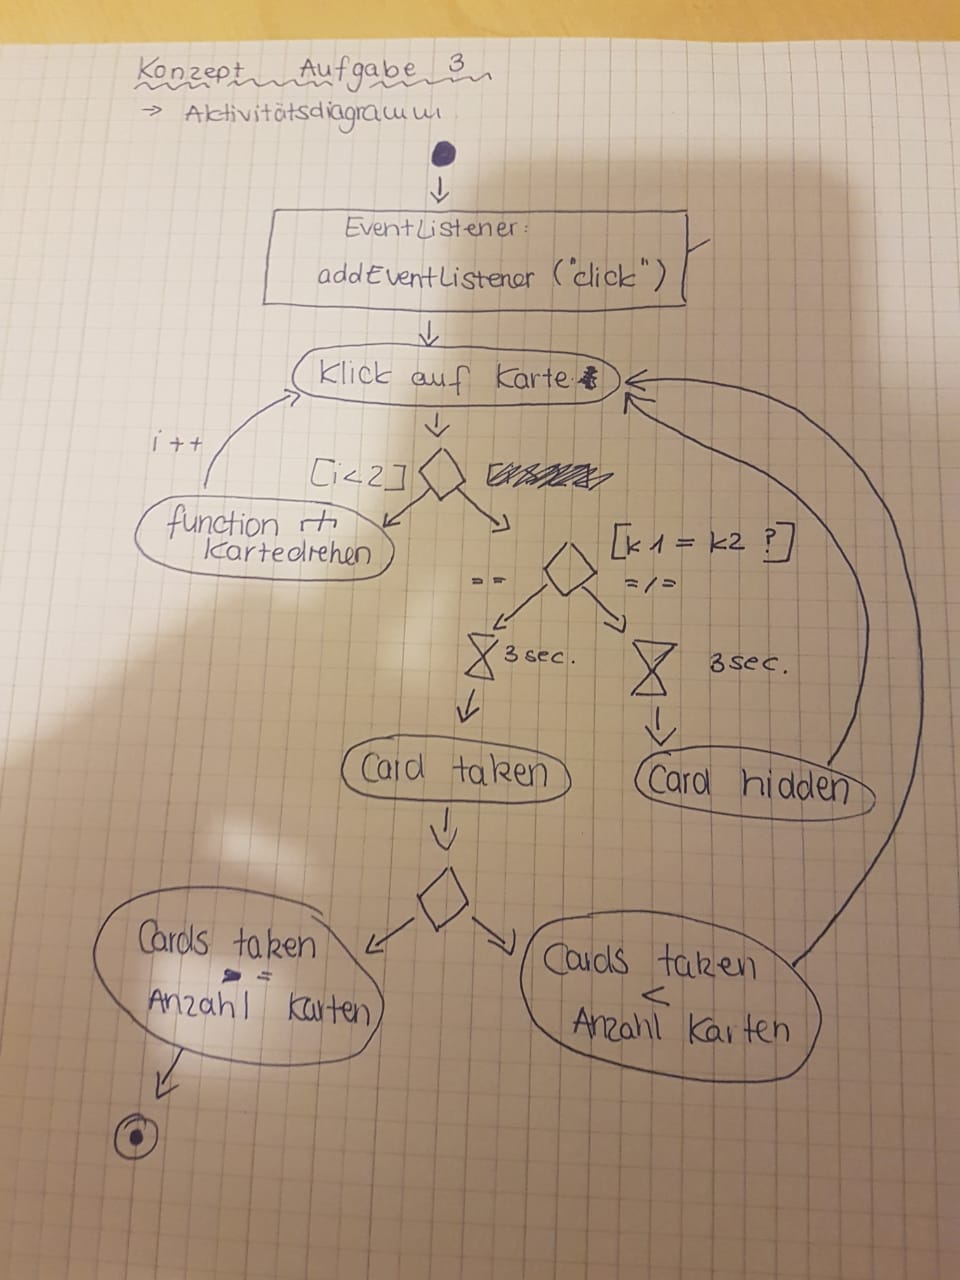 Konzept Aufgabe 3
→ Aktivitätsdiagramm
EventListener:
addEventListener ("click")
Klick auf Karte
i++
[i<2]
function
Kartedrehen
[k1 = k2 ?]
==
=/=
3 sec.
3 sec.
Card taken
Card hidden
Cards taken
=
Anzahl Karten
Cards taken
<
Anzahl Karten